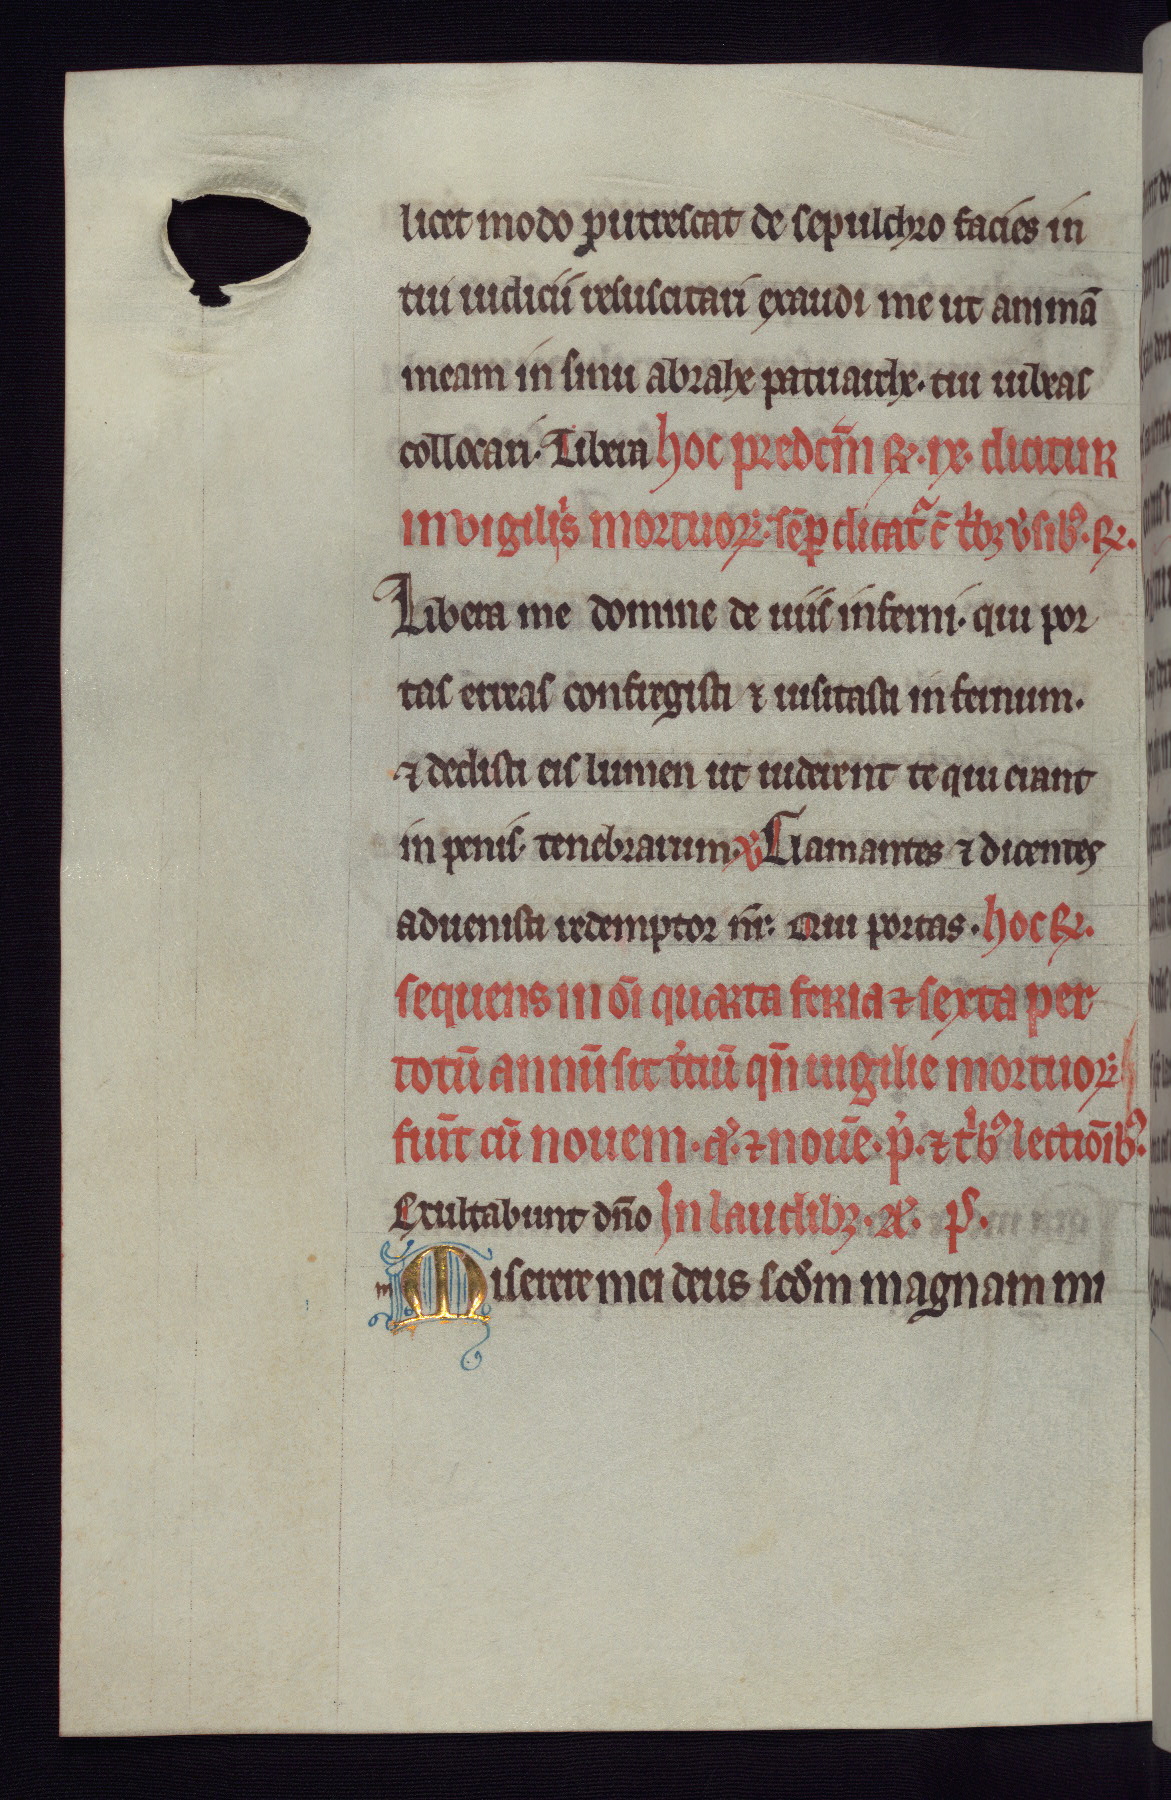 licet modo putrescat de sepulchro facies in
tui iudicii resuscitari exaudi me ut animā
meam in sinu abrahe patriarche. tui iubeas
collocari. Libera hoc predcm̄ ℟. ix. dicitur
in vigiliis mortuoꝝ. sēp dicat᷑ c̄ tⁱbꝫ v̾sibꝰ. ℟.
Libera me domine de uiis inferni. qui por
tas erreas confregisti ⁊ uisitasti infernum.
⁊ dedisti eis lumen ut uiderent te qui erant
in penis tenebrarum. ℣ Clamantes ⁊ dicentes
aduenisti redemptor nr̄. Qui portas. hoc ℟.
sequens in om̄i quarta feria ⁊ sexta per
totū annū sit t̾tiū qn̄ uigilie mortuoꝝ
fiūt cū nouem. a̾. ⁊ nouē. p̾. ⁊ tⁱbꝰ lectiōibꝰ.
Exultabunt dn̄o In laudibꝫ. an̄. ps̄.
Miserere mei deus scd̄m magnam mi